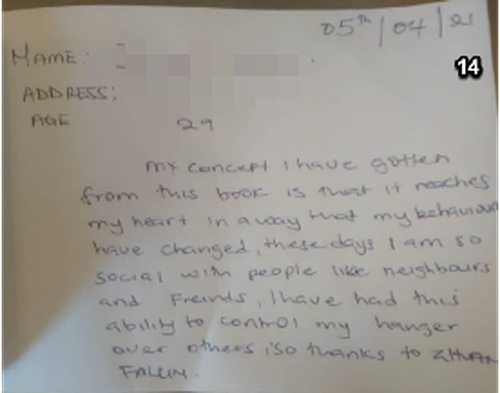 05th/04/21
NAME:
14
ADDRESS:
AGE 29
my concept I have gotten
from this book is that it reaches
my heart in a way that my behaviour
have changed, these days I am so
social with people like neighbours
and Freinds, I have had this
ability to control my hanger
over others, so thanks to ZHUAN
FALUN.